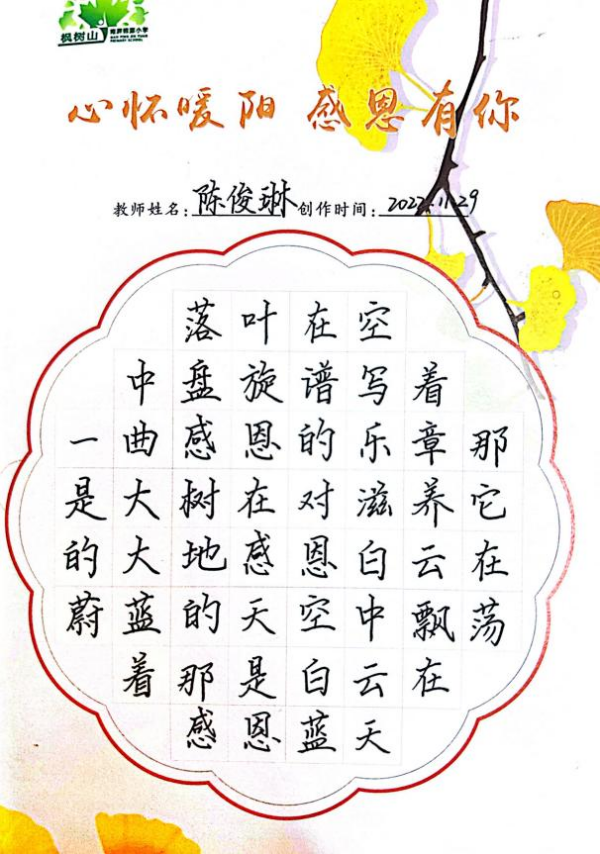 枫树山
PRIMARY SCHOOL
心怀暖阳 感恩有你
教师姓名:陈俊琳创作时间:2022.11.29
落叶在空
中盘旋谱写着
一曲感恩的乐章那
是大树在对滋养它
的大地感恩白云在
蔚蓝的天空中飘荡
着那是白云在
感恩蓝天